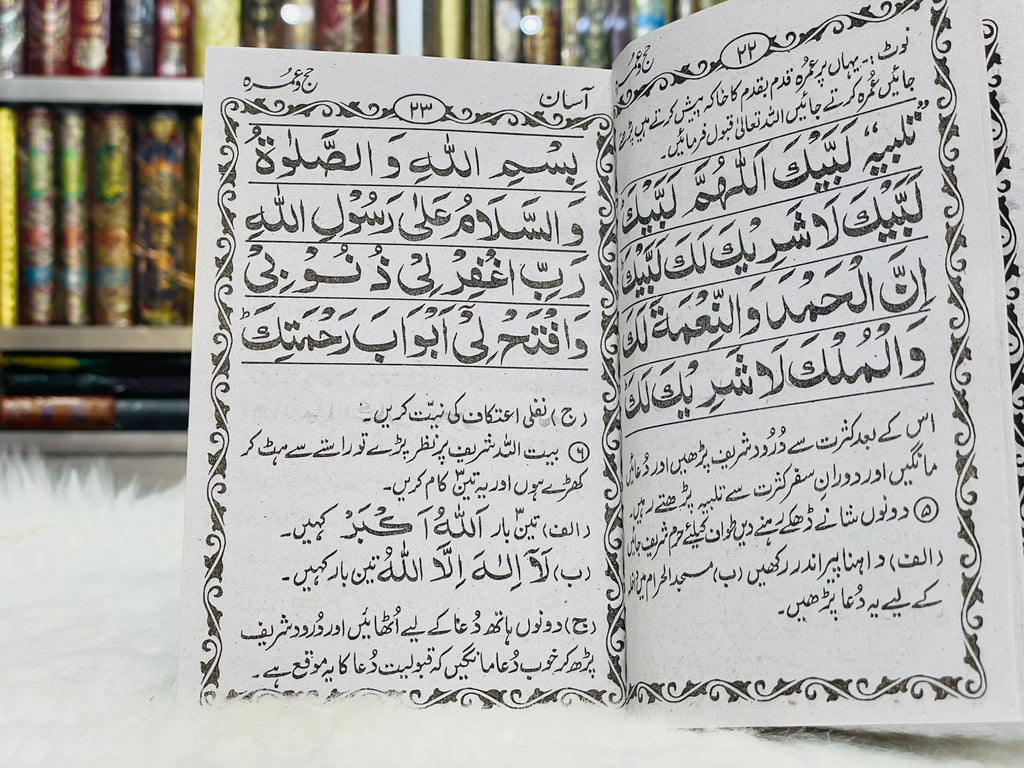 ۲۲
حج و عمرہ
نوٹ :- یہاں پر عمرہ قدم بقدم کا خاکہ پیش کرتے ہیں پڑھتے
جائیں عُمرہ کرتے جائیں اللہ تعالیٰ قبول فرمائیں۔
”تلبیہ“ لَبَّيْكَ اَللّٰهُمَّ لَبَّيْكَ
لَبَّيْكَ لَا شَرِيْكَ لَكَ لَبَّيْكَ
اِنَّ الْحَمْدَ وَالنِّعْمَةَ لَكَ
وَالْمُلْكَ لَا شَرِيْكَ لَكَ
اس کے بعد کثرت سے دُرُود شریف پڑھیں اور دُعائیں
مانگیں اور دورانِ سفر کثرت سے تلبیہ پڑھتے رہیں۔
۵ دونوں شانے ڈھکے رہنے دیں طواف کیلئے حرم شریف جائیں
(الف) داہنا پیر اندر رکھیں (ب) مسجد الحرام میں
کے لیے یہ دُعا پڑھیں۔
آسان
۲۳
حج و عمرہ
بِسْمِ اللهِ وَ الصَّلٰوةُ
وَالسَّلَامُ عَلٰى رَسُوْلِ اللهِ
رَبِّ اغْفِرْ لِىْ ذُنُوْبِىْ
وَافْتَحْ لِىْ اَبْوَابَ رَحْمَتِكَ ؕ
(ج) نفلی اعتکاف کی نیّت کریں۔
۶ بیت اللہ شریف پر نظر پڑے تو راستے سے ہٹ کر
کھڑے ہوں اور یہ تین کام کریں۔
(الف) تین بار اَللّٰهُ اَكْبَرْ کہیں۔
(ب) لَآ اِلٰهَ اِلَّا اللّٰهُ تین بار کہیں۔
(ج) دونوں ہاتھ دُعا کے لیے اُٹھائیں اور دُرُود شریف
پڑھ کر خوب دُعا مانگیں کہ قبولیت دُعا کا یہ موقع ہے۔